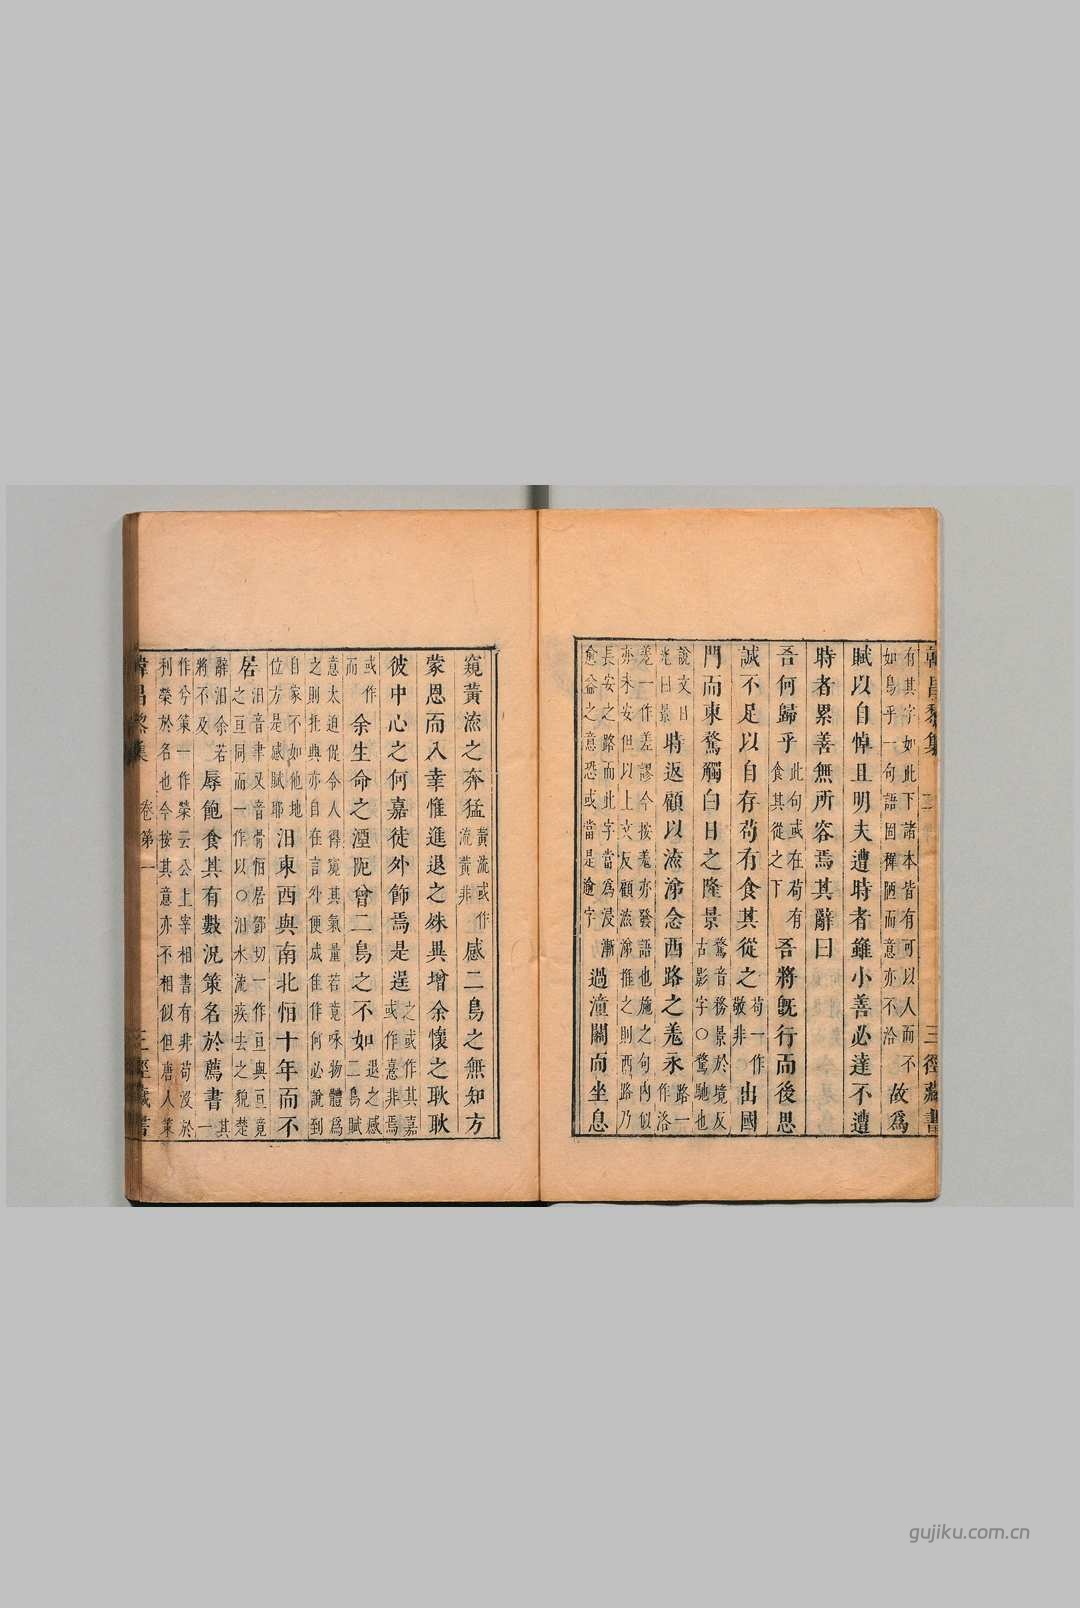 韓昌黎集 三 三徑藏書
有其字如此下諸本皆有可以人而不
如鳥乎一句語固穉陋而意亦不洽
故爲
賦以自悼且明夫遭時者雖小善必達不遭
時者累善無所容焉其辭曰
吾何歸乎
此句或在苟有
食其從之下
吾將既行而後思
誠不足以自存苟有食其從之
苟一作
敬非
出國
門而東騖觸白日之隆景
騖音務景於境反
古影字○騖馳也
說文曰
光曰景
時返顧以流涕念西路之羌永
路一
作洛
羌一作差謬今按羌亦發語也施之句內似
亦未安但以上文反顧流涕推之則西路乃
長安之路而此字當爲浸漸
愈益之意恐或當是逾字
過潼關而坐息
窺黃流之奔猛
黃流或作
流黃非
感二鳥之無知方
蒙恩而入幸惟進退之殊異增余懷之耿耿
彼中心之何嘉徒外飾焉是逞
之或作其嘉
或作憙非焉
或作
而
余生命之湮阨曾二鳥之不如
退之感
二鳥賦
意太迫促令人得窺其氣量若竟咏物體爲
之則托興亦自在言外便成佳作何必說到
自家不如他地
位方是感賦耶
汨東西與南北恒十年而不
居
汨音聿又音骨恒居鄧切一作亘與亘竟
之亘同而一作以○汨水流疾去之貌楚
辭汨余若
將不及
辱飽食其有數況策名於薦書
其
一
作兮策一作榮云公上宰相書有非苟沒於
利榮於名也今按其意亦不相似但唐人策
韓昌黎集 卷第一 三徑藏書
gujiku.com.cn